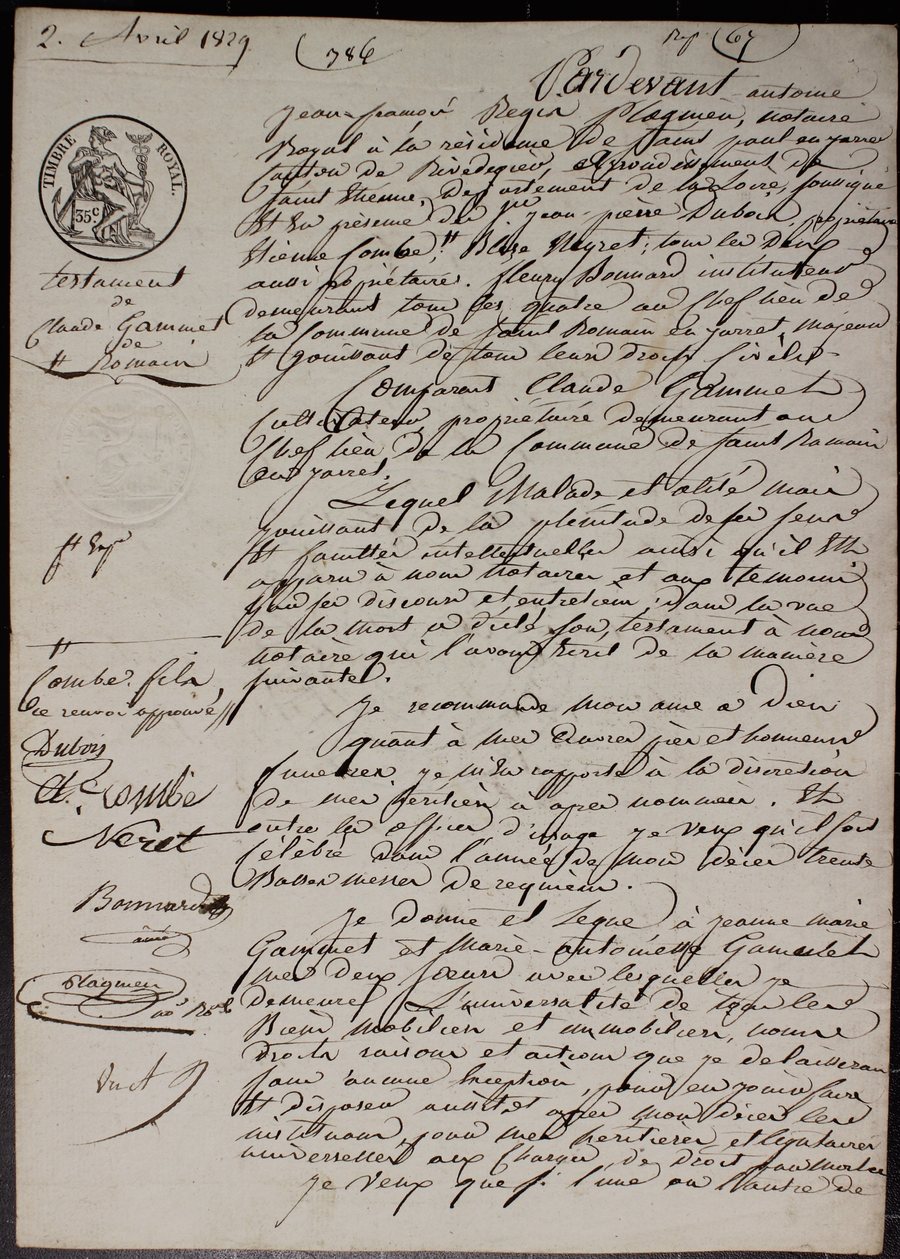 2. Avril 1829
786
Rep 67
Pardevant antoine
jean-françois Regis Plagnieu, notaire
Royal à la résidence de Saint paul en jarret
Canton de Rivedegier, arrondissement de
Saint Etienne, Département de la Loire, soussigné
Et En présence du Sr jean-pierre Dubois, propriétaire
Etienne Combe, Blaize Neyret, tous les Deux
aussi propriétaires. fleury Bonnard instituteur
demeurant tous les quatre au Chef lieu de
la Commune de Saint Romain en jarret, majeurs
Et jouissant de tous leurs droits Civils-
Comparant Claude Gammet
Cultivateur, propriétaire demeurant au
Chef lieu de la Commune de Saint Romain
en jarret.
Lequel Malade et alité mais
jouissant de la plénitude de ses sens
Et facultés intellectuelles ainsi qu'il Est
apparu à nous Notaire et aux témoins
par ses discours et entretiens, dans la vue
de la mort a dicté son testament à nous
notaire qui l'avons Ecrit de la manière
suivante.
Je recommande mon ame a Dieu
quant à mes Œuvres pies et honneurs
funebres, je m'en rapporte à la discretion
de mes héritiers ci apres nommés. Et
outre les offices d'usage je veux qu'il soit
Célébré dans l'année de mon décès trente
Basses messes de requiem.
Je donne et legue à jeanne marie
Gammet et Marie-antoinette Gammet
mes deux sœurs avec lesquelles je
demeure L'universalité de tous les
Biens mobiliers et immobiliers, noms
Droits raisons et actions que je delaisserai
sans aucune Exception, pour en jouir faire
Et disposer aussitot apres mon décès les
instituant pour mes heritieres et légataires
universelles aux Charges de Droit
Je veux que si l'une ou l'autre de
TIMBRE ROYAL.
35 C.
testament
de
Claude Gammet
de
St Romain
Combe. fils
ce renvoi approuvé
Dubois
Combe
Neret
Bonnard
ainé
Plagnieu